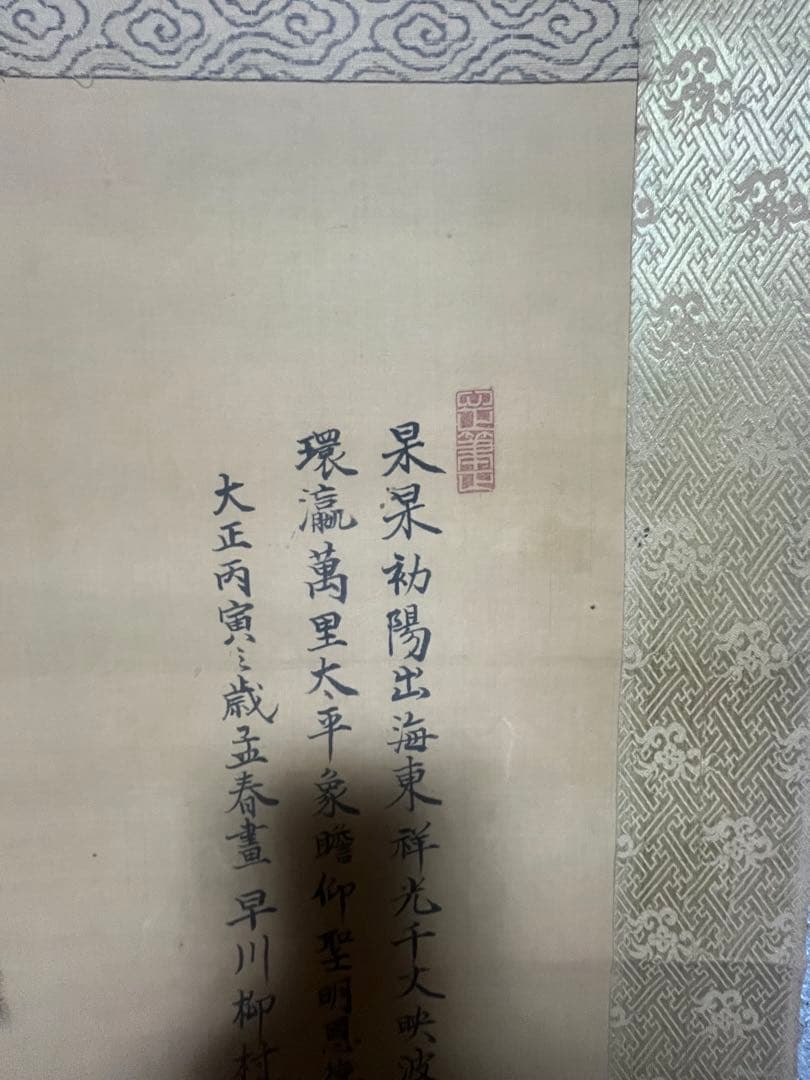 杲杲初陽出海東祥光千丈映波
環瀛萬里太平象瞻仰聖明恩
大正丙寅之歳孟春畫 早川柳村